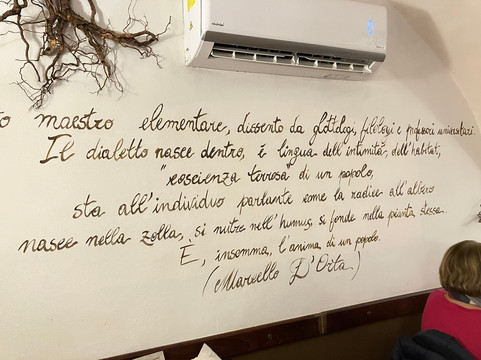 maestro elementare, dissento da glottologi, filologi e professori universitari.
Il dialetto nasce dentro, è lingua dell'intimità, dell'habitat,
"coscienza terrosa" di un popolo,
sta all'individuo parlante come la radice all'albero
nasce nella zolla, si nutre nell'humus, si fonde nella pianta stessa.
È, insomma, l'anima di un popolo.
(Marcello D'Orta)